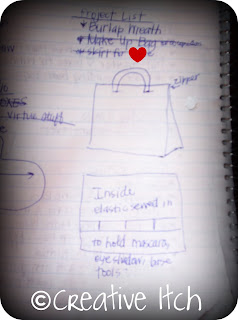 Project List
* Burlap Wreath
* Make Up Bag
* Skirt for
zipper
virtue stuff
Inside
elastic sewed in
to hold mascara,
eyeshadow, base
tools.
©Creative Itch